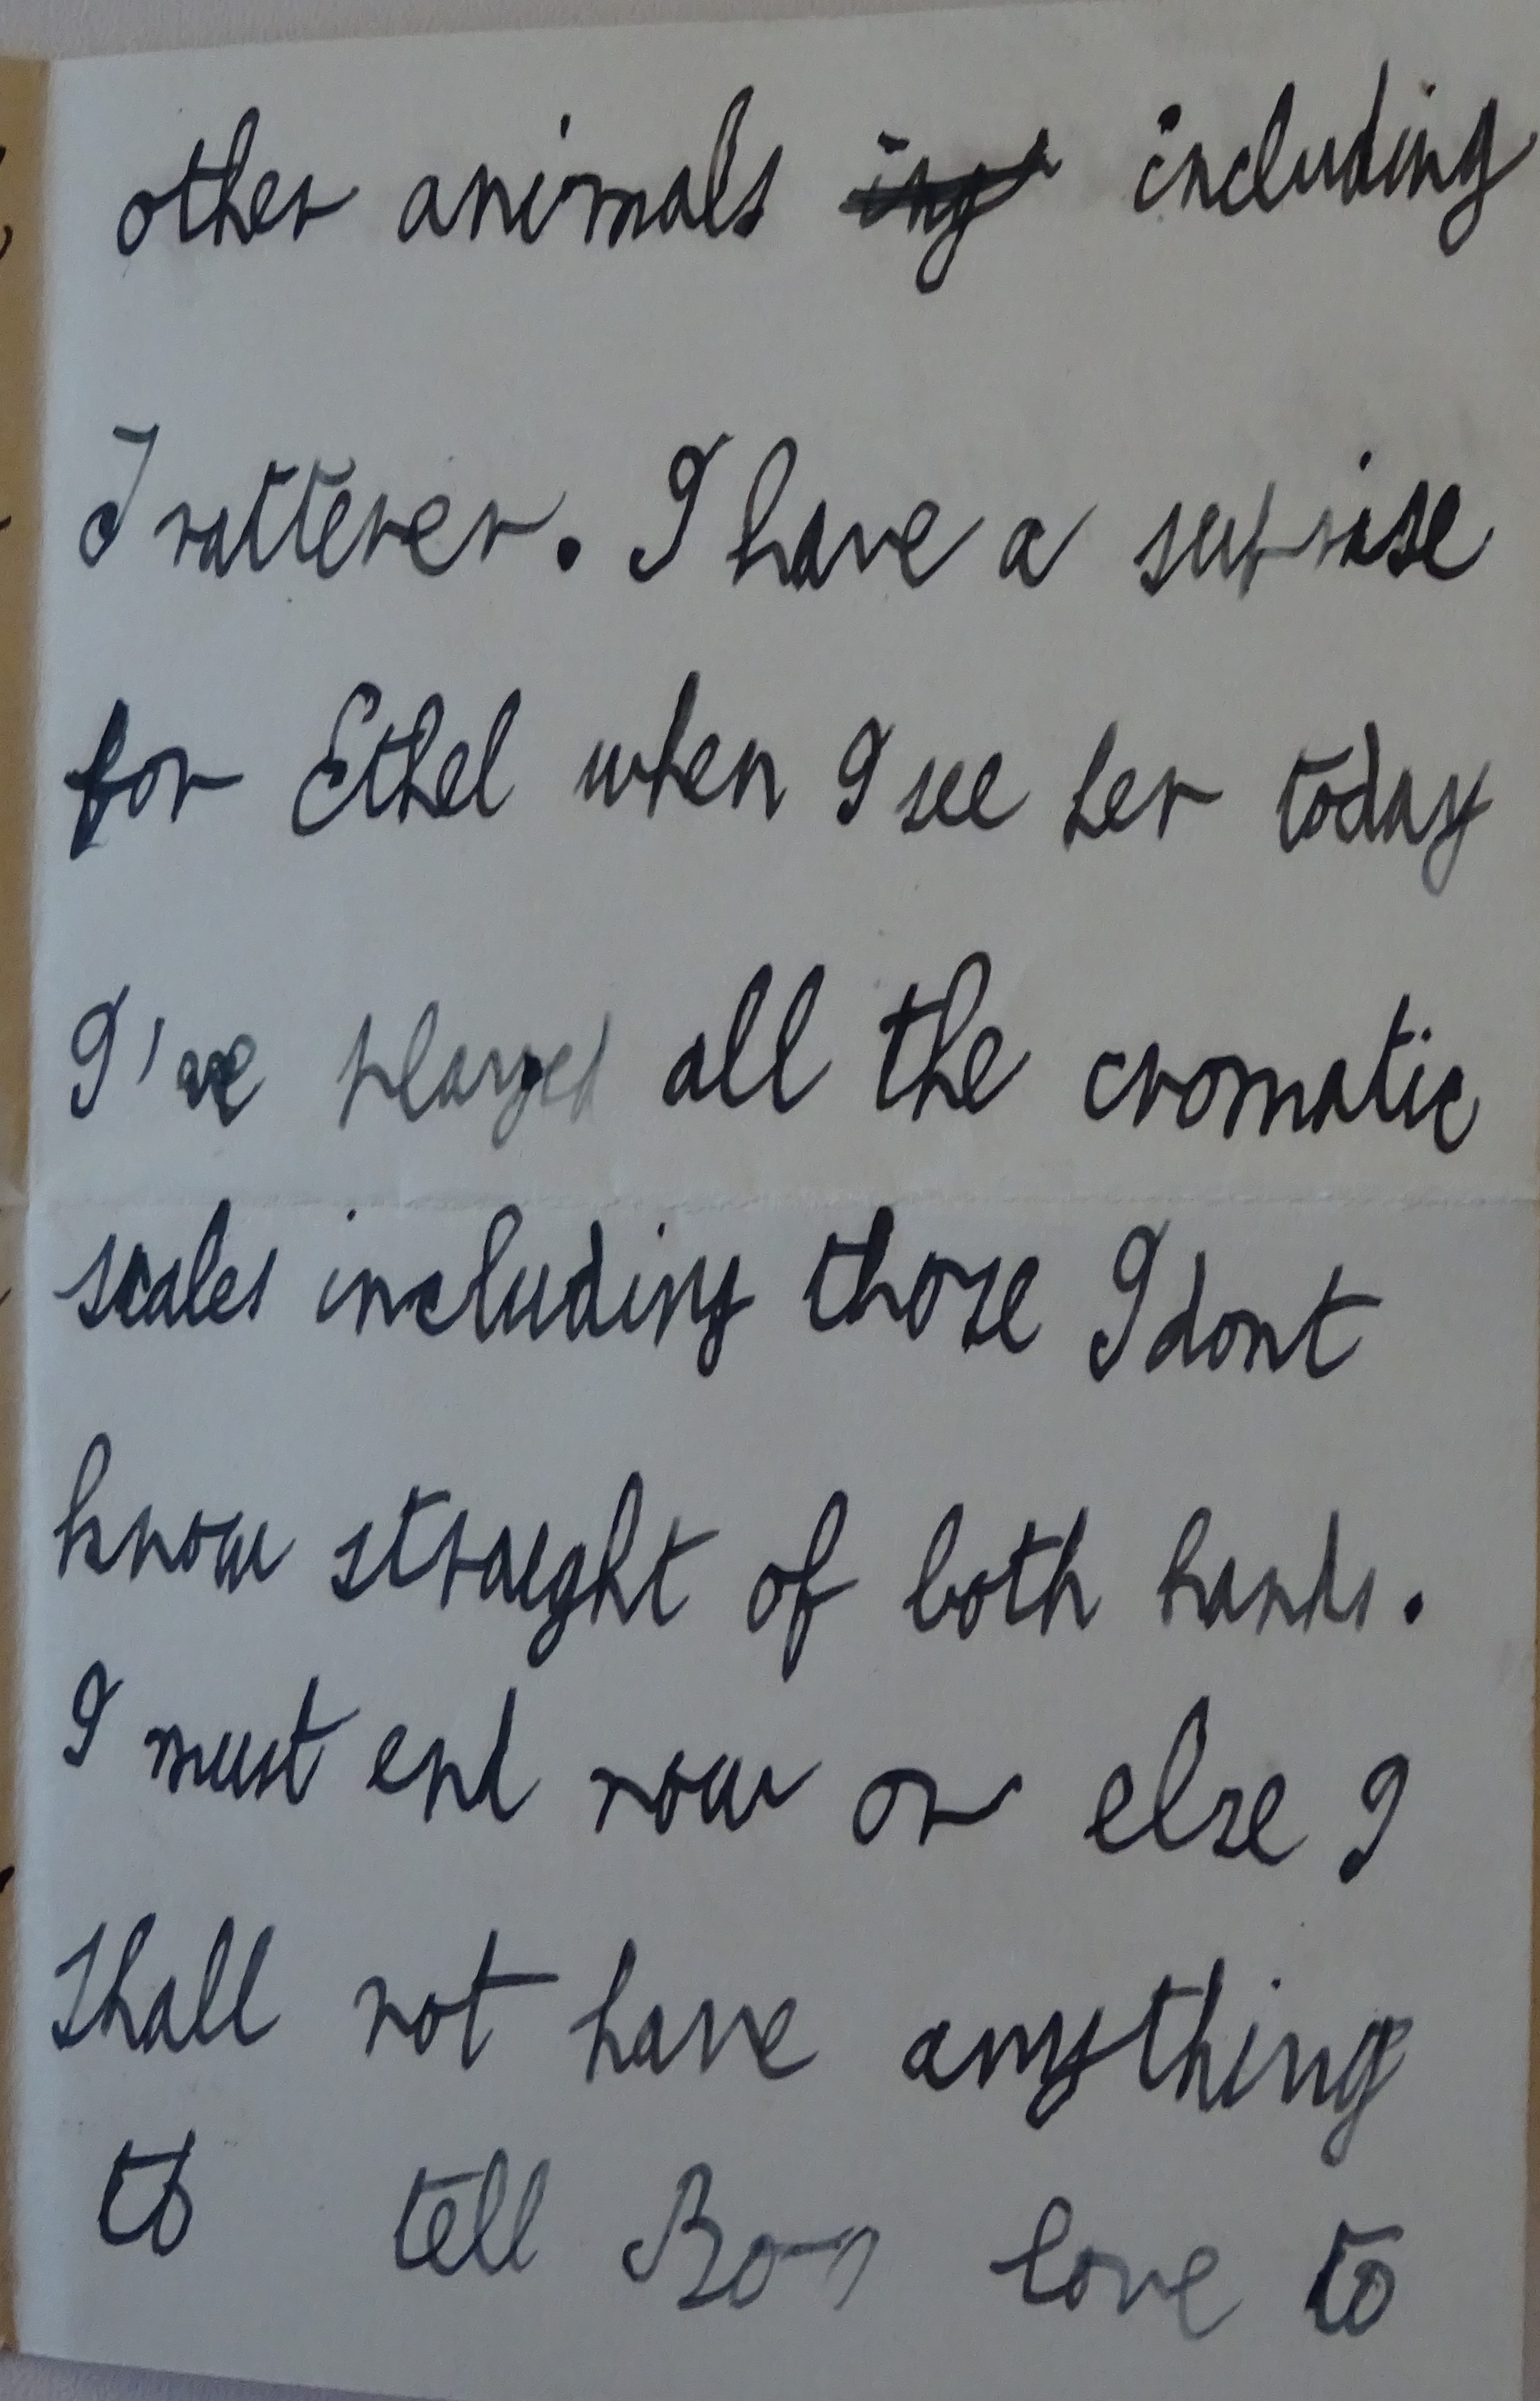 other animals ing including
Tratterer. I have a suprise
for Ethel when I see her today
I've played all the cromatic
scales including those I dont
know straeght of both hands.
I must end now or else I
shall not have anything
to tell love to